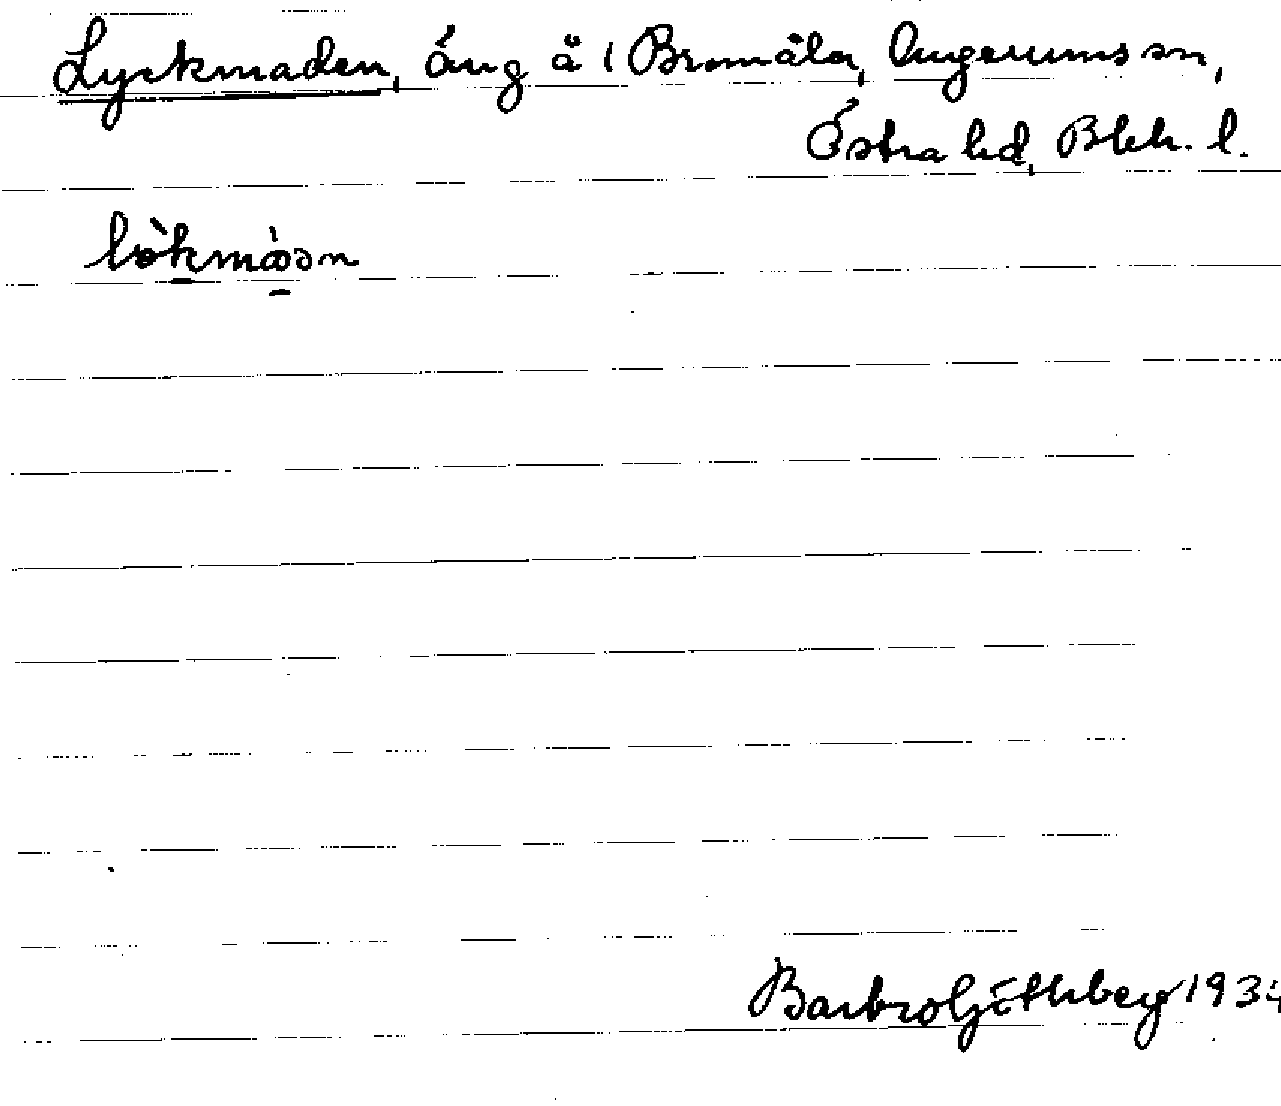 Lyckmaden, äng å i Bromåla, Augerums sn,
Östra hd, Blek. l.
Barbro Göthberg